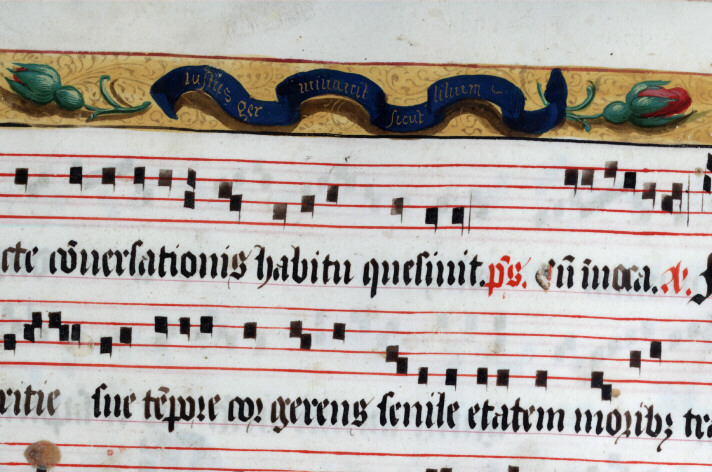 iustus ger minauit sicut lilium
cte cõuersationis habitu quesiuit. p̃s. Cũ inuoca. A.
ritie sue tẽpore cor gerens senile etatem moribꝫ tra